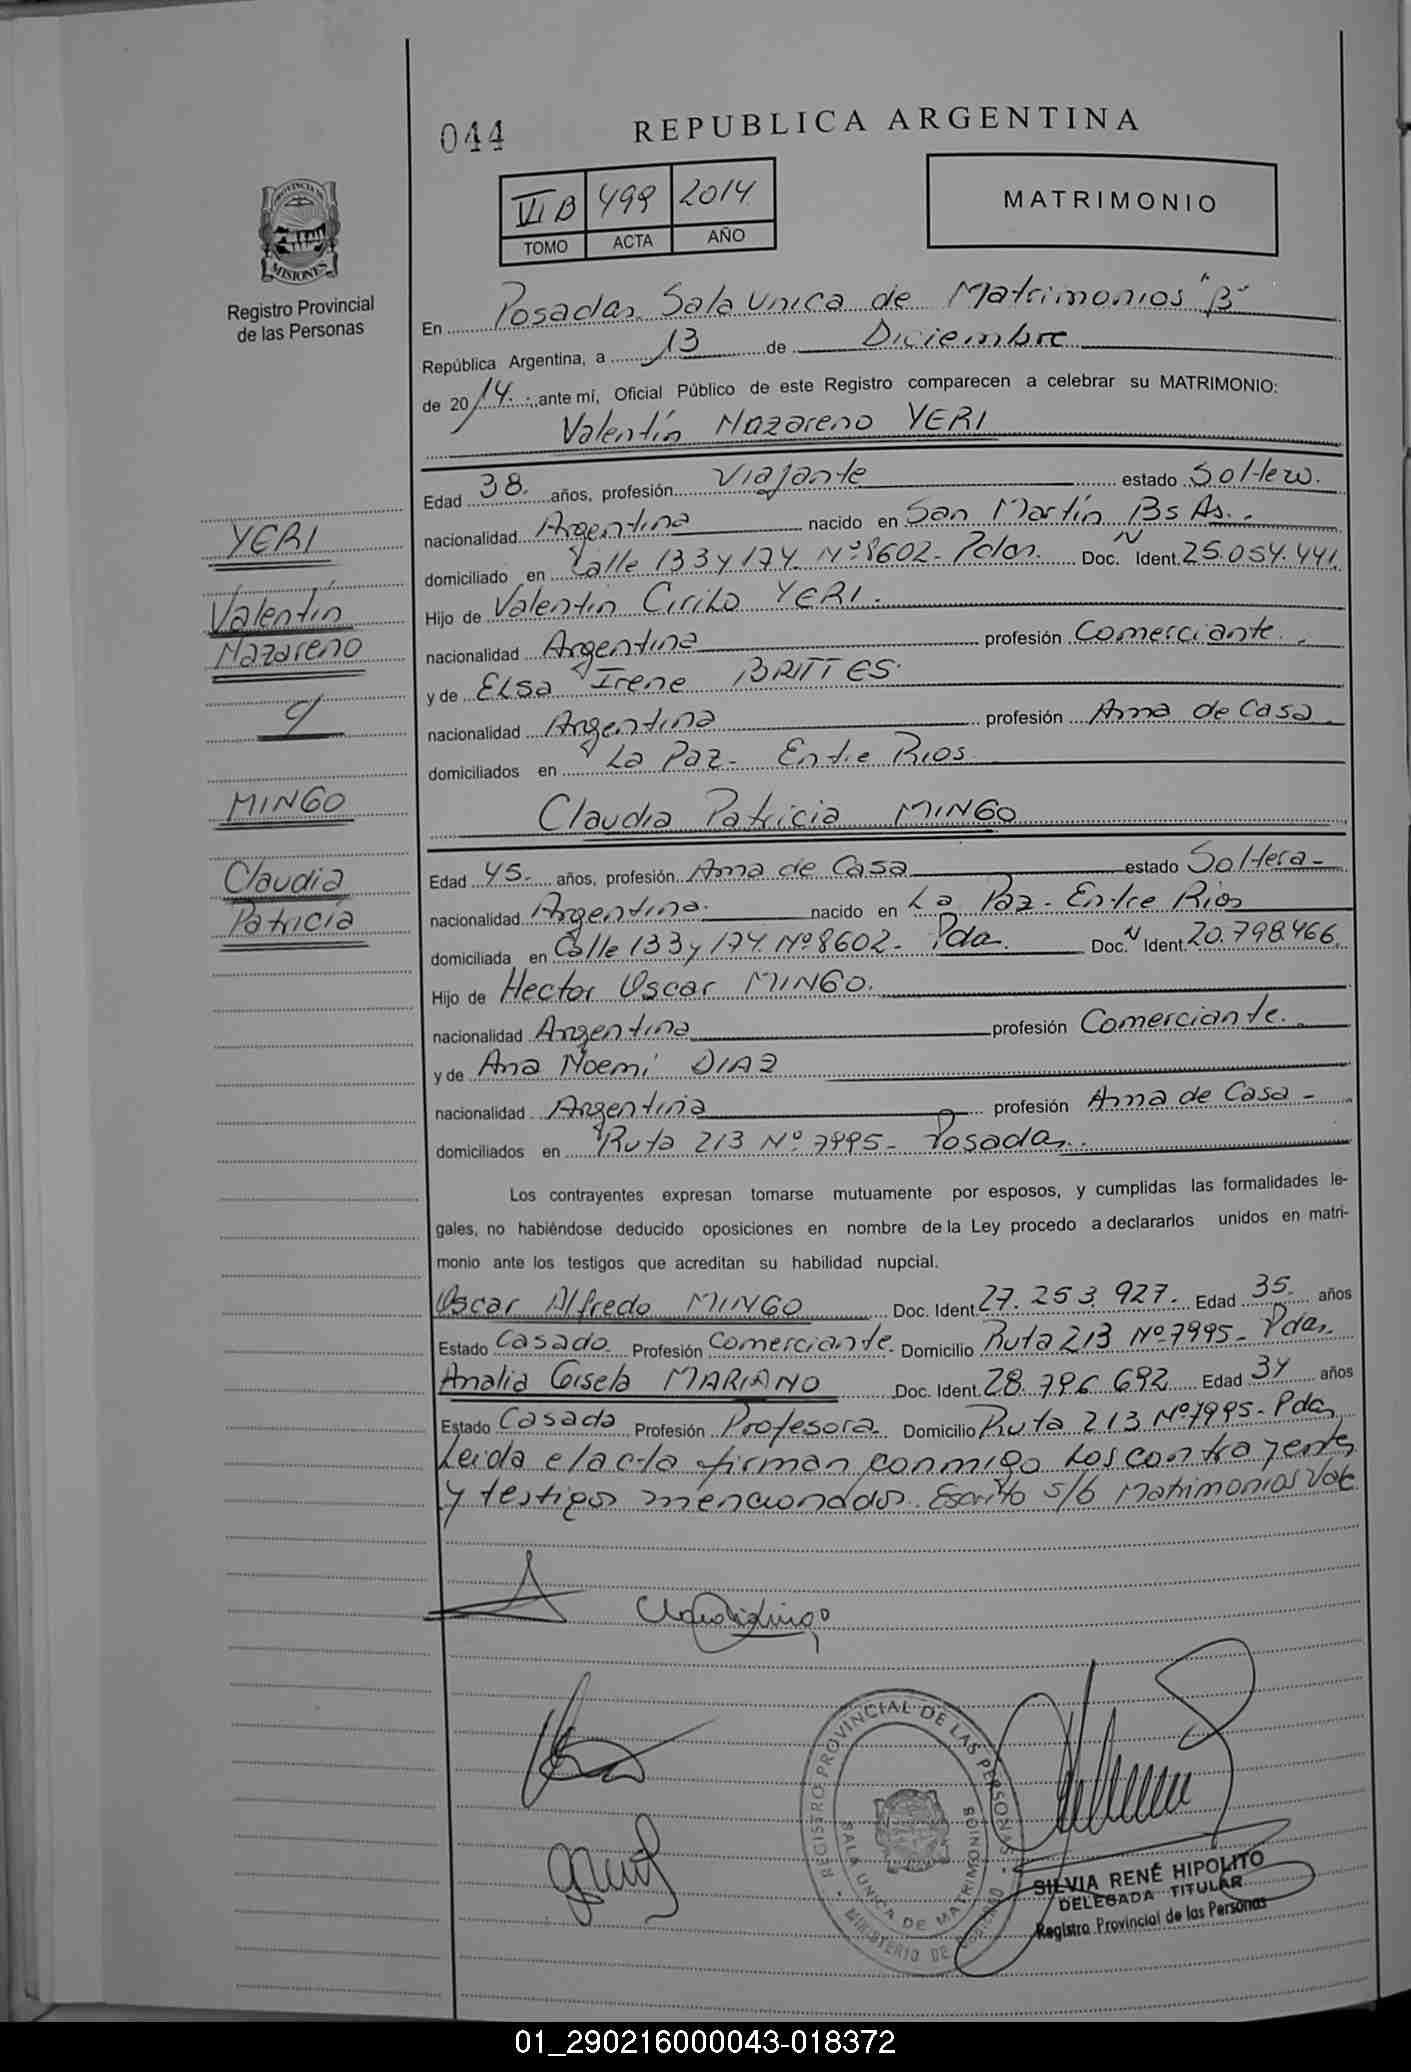 044
REPUBLICA ARGENTINA
VI B 499 2014
TOMO ACTA AÑO
MATRIMONIO
PROVINCIA DE
MISIONES
Registro Provincial
de las Personas
En Posadas Sala Unica de Matrimonios "B"
República Argentina, a 13 de Diciembre
de 2014 ante mi, Oficial Público de este Registro comparecen a celebrar su MATRIMONIO:
Valentín Nazareno YERI
Edad 38. años, profesión Viajante estado Soltero.
nacionalidad Argentina nacido en San Martín Bs As.
domiciliado en Calle 133 y 174 Nº 8602 - Pdas. Doc. N Ident. 25.054.441.
Hijo de Valentín Cirilo YERI.
nacionalidad Argentina profesión Comerciante.
y de Elsa Irene BRITTES
nacionalidad Argentina profesión Ama de Casa
domiciliados en La Paz - Entre Rios
YERI
Valentín
Nazareno
y
MINGO
Claudia
Patricia
Claudia Patricia MINGO
Edad 45. años, profesión Ama de Casa estado Soltera -
nacionalidad Argentina. nacido en La Paz - Entre Rios
domiciliada en Calle 133 y 174 Nº 8602 - Pdas. Doc. N Ident. 20.798.466
Hijo de Hector Oscar MINGO.
nacionalidad Argentina profesión Comerciante.
y de Ana Noemi DIAZ
nacionalidad Argentina profesión Ama de Casa -
domiciliados en Ruta 213 Nº 7995 - Posadas.
Los contrayentes expresan tomarse mutuamente por esposos, y cumplidas las formalidades le-
gales, no habiéndose deducido oposiciones en nombre de la Ley procedo a declararlos unidos en matri-
monio ante los testigos que acreditan su habilidad nupcial.
Oscar Alfredo MINGO Doc. Ident. 27.253.927. Edad 35. años
Estado Casado. Profesión Comerciante. Domicilio Ruta 213 Nº 7995 - Pdas.
Analia Gisela MARIANO Doc. Ident. 28.796.692 Edad 34 años
Estado Casada Profesión Profesora. Domicilio Ruta 213 Nº 7995 - Pdas
Leida el acta firman conmigo los contrayentes
y testigos mencionados. Escrito s/b Matrimonios Vale
REGISTRO PROVINCIAL DE LAS PERSONAS
SALA UNICA DE MATRIMONIOS
MINISTERIO DE
SILVIA RENÉ HIPOLITO
DELEGADA TITULAR
Registro Provincial de las Personas
01_290216000043-018372